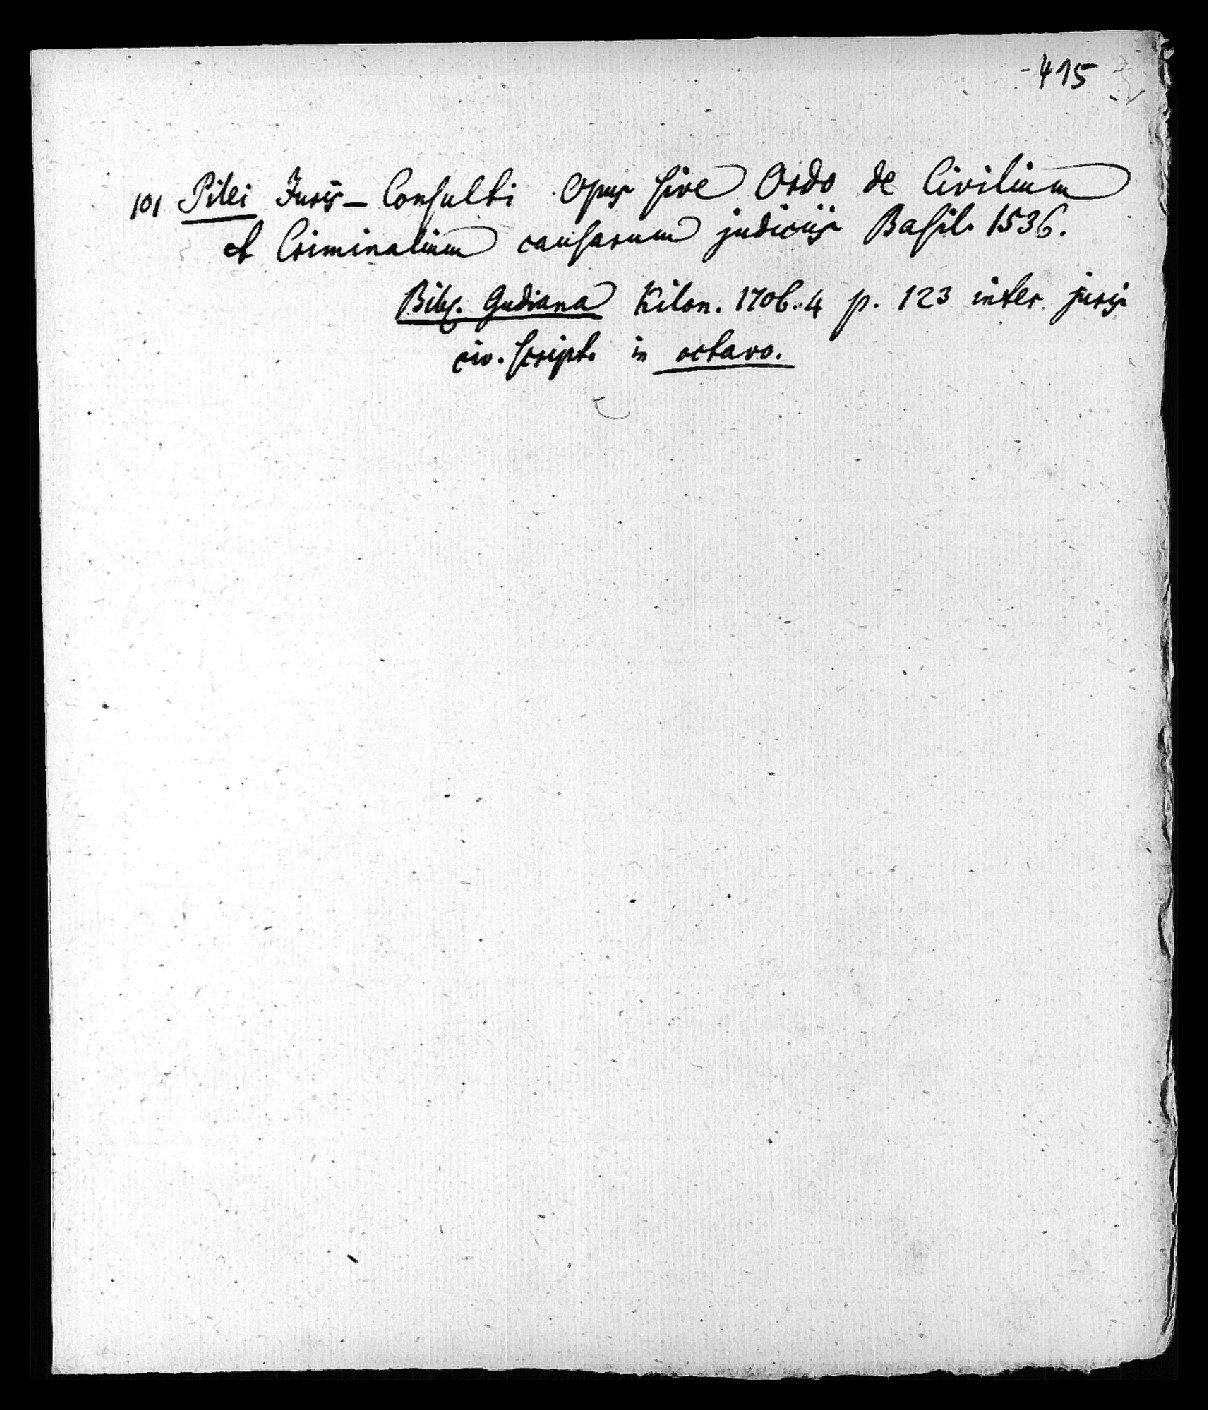 415
101 Pilei Juris-Consulti Opus sive Ordo de Civilium
et Criminalium causarum judiciis Basil. 1536.
Bibl. Gudiana Kilon. 1706. 4 p. 123 inter juris
civ. script. in octavo.